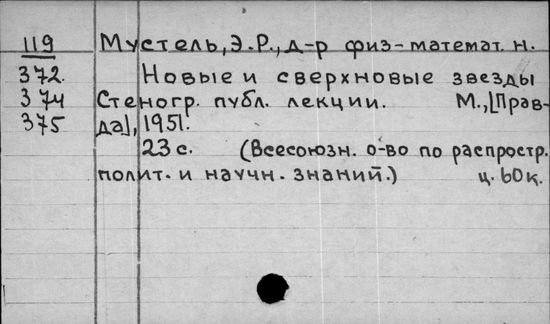 119 Мустель, Э.Р., д-р физ-математ. н.
372. Новые и сверхновые звезды
374 Стеногр. публ. лекции. М., [Прав-
375 да], 1951.
23 с. (Всесоюзн. о-во по распростр.
полит. и научн. знаний.) ц. 60к.